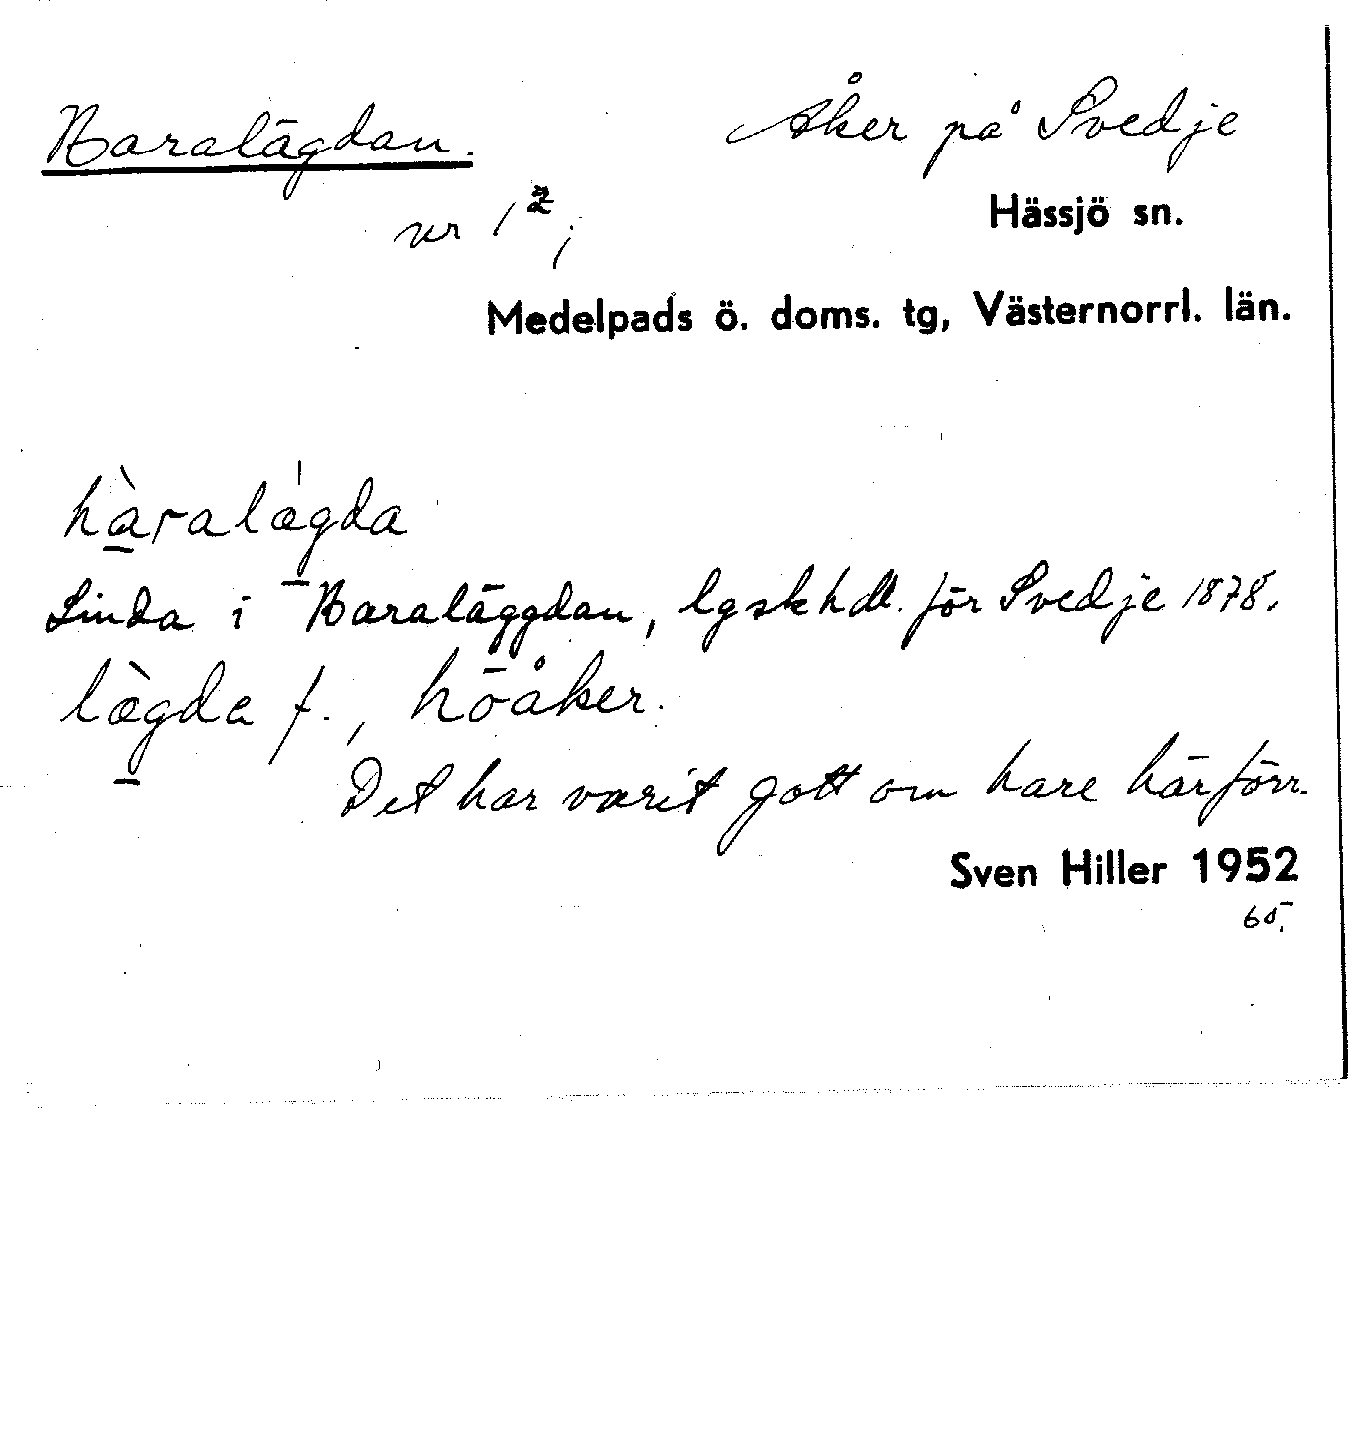 Haralägdan. Åker på Svedje
nr 1²; Hässjö sn.
Medelpads ö. doms. tg, Västernorrl. län.
hàralǽgda
Linda i Haraläggdan, lgskhdl. för Svedje 1878.
læ̀gda f., höåker.
Det har varit gott om hare här förr.
Sven Hiller 1952